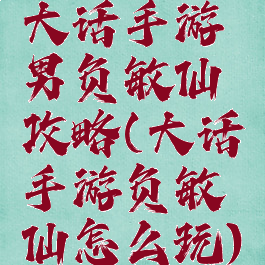 大话手游
男负敏仙
攻略(大话
手游负敏
仙怎么玩)